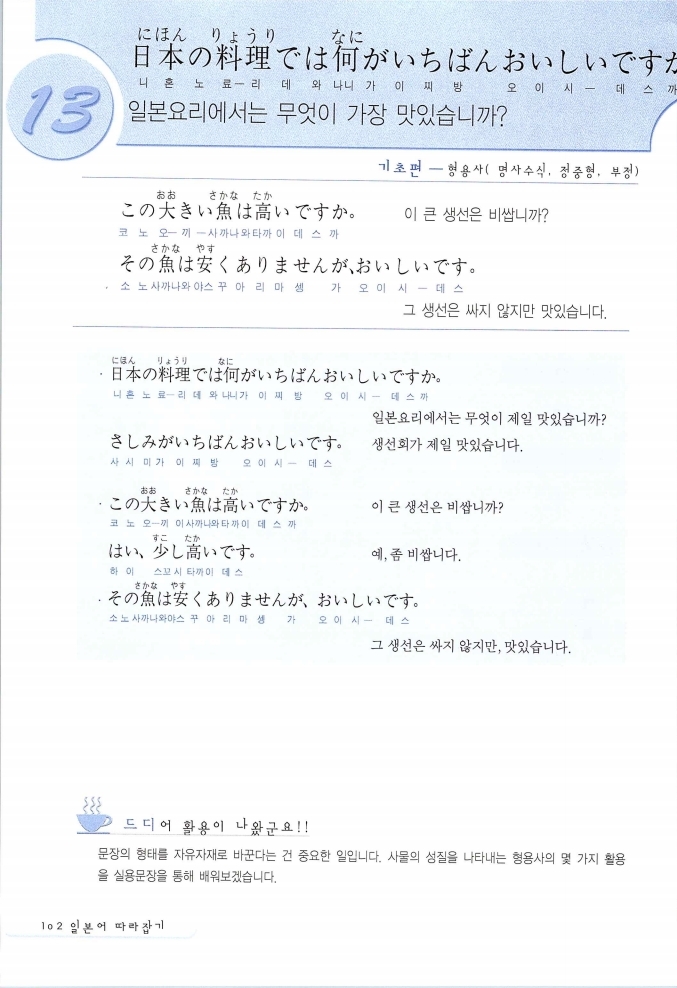 にほん りょうり なに
日本の料理では何がいちばんおいしいですか
니 혼 노 료ー리 데 와 나니 가 이 찌 방 오 이 시 ー 데 스 까
13
일본요리에서는 무엇이 가장 맛있습니까?
기초편 ー 형용사( 명사수식, 정중형, 부정)
おお さかな たか
この大きい魚は高いですか。 이 큰 생선은 비쌉니까?
코 노 오ー 끼 ー사까나와타까이 데 스 까
さかな やす
その魚は安くありませんが、おいしいです。
소 노사까나와야스 꾸 아 리 마 셍 가 오 이 시 ー 데스
그 생선은 싸지 않지만 맛있습니다.
にほん りょうり なに
· 日本の料理では何がいちばんおいしいですか。
니 혼 노 료ー 리 데 와 나니가 이 찌 방 오 이 시 ー 데스 까
일본요리에서는 무엇이 제일 맛있습니까?
さしみがいちばんおいしいです。 생선회가 제일 맛있습니다.
사 시 미가 이 찌 방 오 이 시ー 데 스
おお さかな たか
· この大きい魚は高いですか。 이 큰 생선은 비쌉니까?
코 노 오ー끼 이사까나와타까이 데 스 까
すこ たか
はい、少し高いです。 예, 좀 비쌉니다.
하 이 스꼬시타까이 데스
さかな やす
· その魚は安くありませんが、おいしいです。
소노사까나와야스 꾸 아 리 마 셍 가 오 이 시 ー 데스
그 생선은 싸지 않지만, 맛있습니다.
드디어 활용이 나왔군요!!
문장의 형태를 자유자재로 바꾼다는 건 중요한 일입니다. 사물의 성질을 나타내는 형용사의 몇 가지 활용
을 실용문장을 통해 배워보겠습니다.
102 일본어 따라잡기